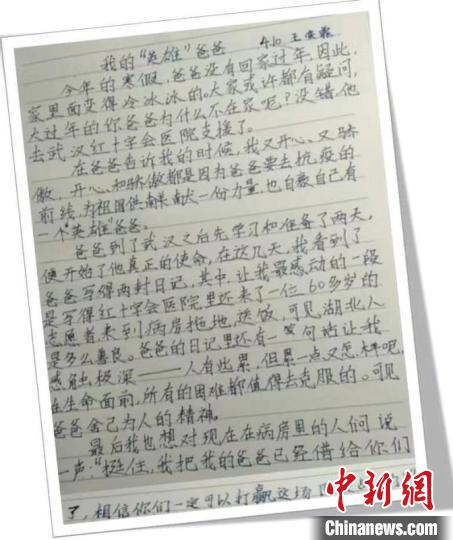 我的“英雄”爸爸
4.10 王
今年的寒假，爸爸没有回家过年，因此，
家里面变得冷冰冰的。大家或许都有疑问，
大过年的你爸爸为什么不在家呢？没错，他
去武汉红十字会医院支援了。
在爸爸告诉我的时候，我又开心、又骄
傲，开心和骄傲都是因为爸爸要去抗疫的
前线，为祖国供献一份力量，也自豪自己有
一个“英雄”爸爸。
爸爸到了武汉之后先学习和准备了两天，
便开始了他真正的使命，在这几天，我看到了
爸爸写得两封日记，其中，让我最感动的一段
是写得红十字会医院里还来了一位60多岁的
志愿者来到病房拖地，送饭，可见湖北人
是多么善良。爸爸的日记里还有一句话让我
感触极深——人有些累，但累一点又怎样呢，
在生命面前，所有的困难都值得去克服的。可见
爸爸舍己为人的精神。
最后我也想对现在在病房里的人们说
一声：“挺住，我把我的爸爸已经借给你们
了，相信你们一定可以打赢这场
中新网
Chinanews.com